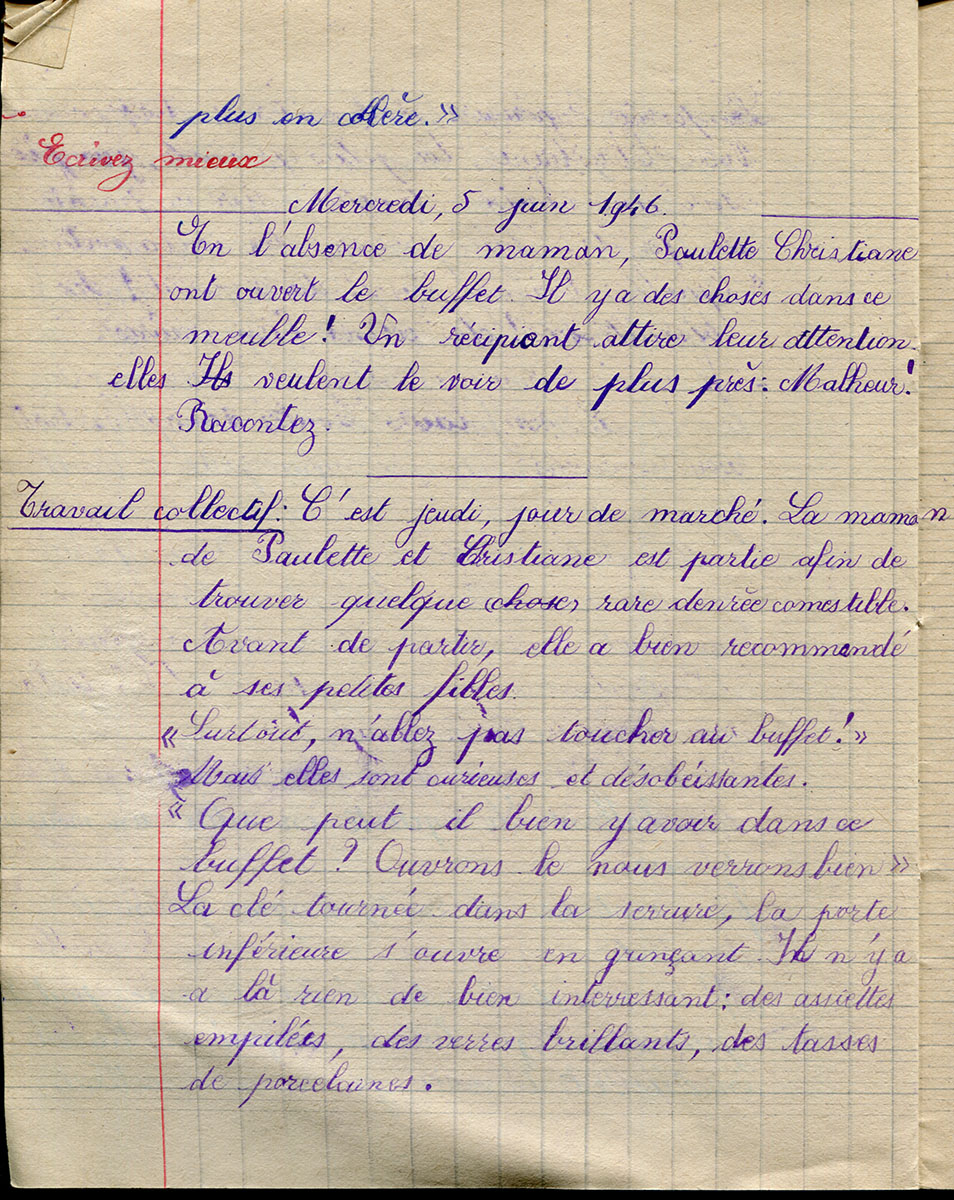 plus en colère.»
Ecrivez mieux
Mercredi, 5 juin 1946.
En l'absence de maman, Paulette Christiane
ont ouvert le buffet. Il y a des choses dans ce
meuble! Un récipient attire leur attention.
elles Ils veulent le voir de plus près: Malheur!
Racontez.
Travail collectif: C'est jeudi, jour de marché. La maman
de Paulette et Christiane est partie afin de
trouver quelque (chose) rare denrée comestible.
Avant de partir, elle a bien recommandé
à ses petites filles.
«Surtout, n'allez pas toucher au buffet!»
Mais elles sont curieuses et désobéissantes.
«Que peut il bien y avoir dans ce
buffet? Ouvrons le nous verrons bien»
La clé tournée dans la serrure, la porte
inférieure s'ouvre en grinçant. Il n'y a
a là rien de bien interressant; des assiettes
empilées, des verres brillants, des tasses
de porcelaines.